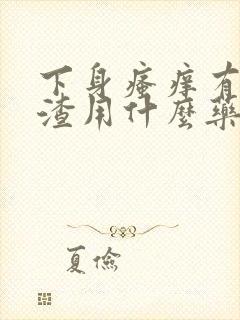 下身瘙痒有
渣用什麼藥
夏儉